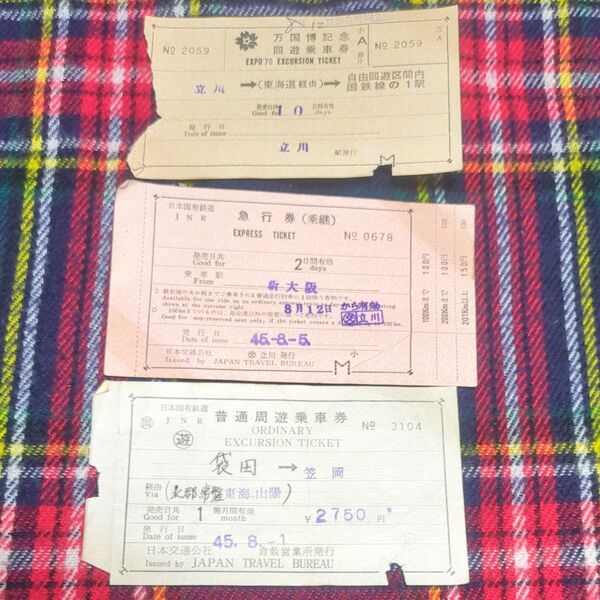 8.12
万国博記念
回遊乗車券
EXPO'70 EXCURSION TICKET
№ 2059
小
A
№ 2059
万A
立川
→(東海道経由)→
自由回遊区間内
国鉄線の1駅
発売日共
Good for
10
日間有効
days
発行日
Date of issue
立川
駅発行
M
日本国有鉄道
JNR
急行券(乗継)
EXPRESS TICKET
№ 0678
発売日共
Good for
2
日間有効
days
乗車駅
From
新大阪
8月12日から有効
立川
発行日
Date of issue
45.-8.-5.
小
日本交通公社
交 立川 発行
Issued by JAPAN TRAVEL BUREAU
M
100Kmまで 100円
200Kmまで 100円
201Km以上 150円
日本国有鉄道
JNR
普通周遊乗車券
ORDINARY
EXCURSION TICKET
№ 3104
遊
袋田 → 笠岡
経由
Via
(水郡常盤東海、山陽)
発売日共
Good for
1
箇月間有効
month
¥2750円
発行日
Date of issue
45. 8. -1
日本交通公社 倉敷営業所発行
Issued by JAPAN TRAVEL BUREAU